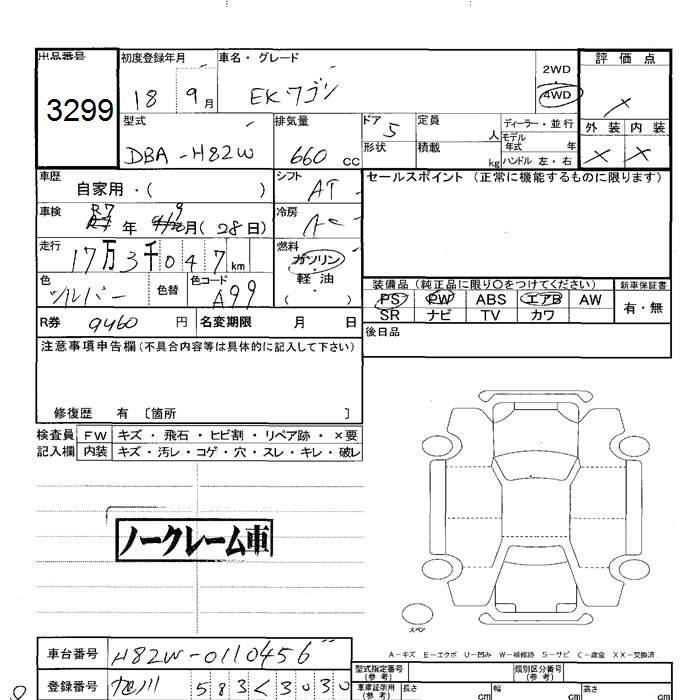 出品番号 初度登録年月 車名・グレード 評価点
3299 18 9月 EKワゴン 2WD
4WD ×
型式 排気量 ドア 5 定員 人 ディーラー・並行 外装 内装
DBA-H82W 660 cc 形状 積載 kg モデル年式 年 × ×
ハンドル 左・右
車歴 自家用・( ) シフト AT セールスポイント (正常に機能するものに限ります)
車検 R7 年 9月 (28日) 冷房 AC
走行 17万3千047km 燃料 ガソリン
軽油
( )
色 シルバー 色替 色コード A99
装備品 (純正品に限り○をつけてください) 新車保証書
PS PW ABS エアB AW 有・無
SR ナビ TV カワ
R券 9460 円 名変期限 月 日 後日品
注意事項申告欄 (不具合内容等は具体的に記入して下さい)
修復歴 有 〔箇所 〕
検査員 FW キズ・飛石・ヒビ割・リペア跡・×要
記入欄 内装 キズ・汚レ・コゲ・穴・スレ・キレ・破レ
ノークレーム車
スペア
A-キズ E-エクボ U-凹み W-補修跡 S-サビ C-腐食 XX-交換済
車台番号 H82W-0110456
型式指定番号 (参考) 類別区分番号 (参考)
登録番号 旭川 583 く 3030
車庫証明用 (参考) 長さ cm 幅 cm 高さ cm